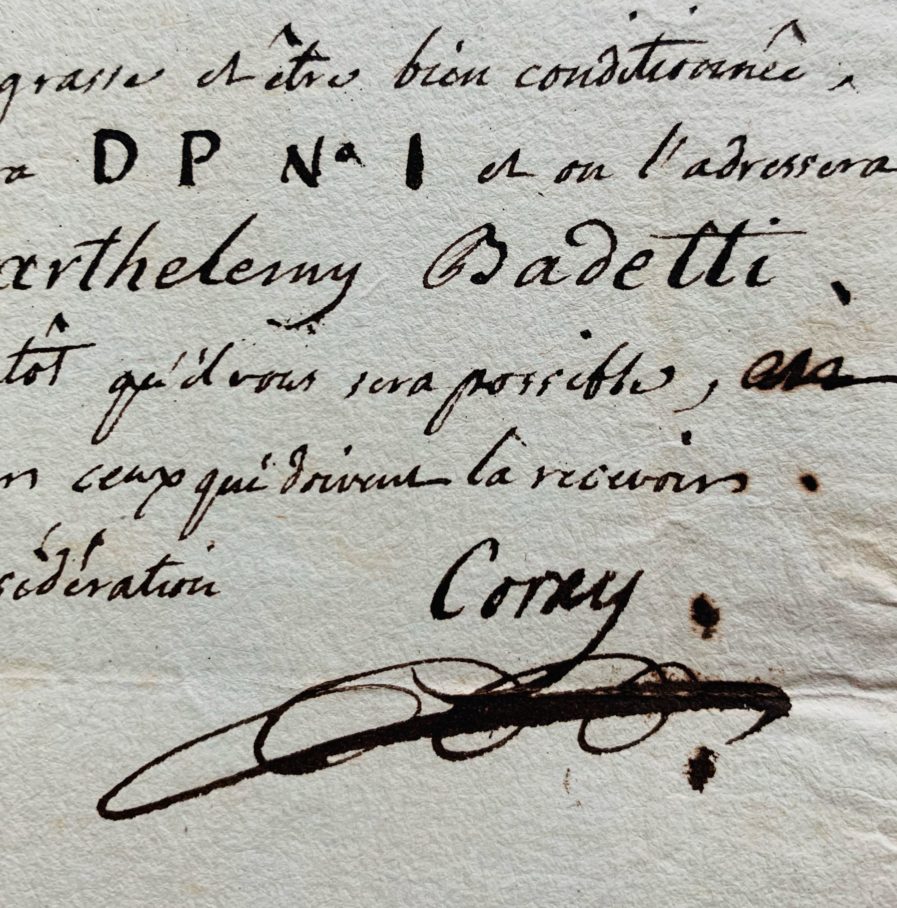 grasse et être bien conditionnée,
ra DP Nº 1 et on l'adressera
arthelemy Badetti.
tôt qu'il vous sera possible,
ceux qui doivent la recevoir.
sidération
Coray